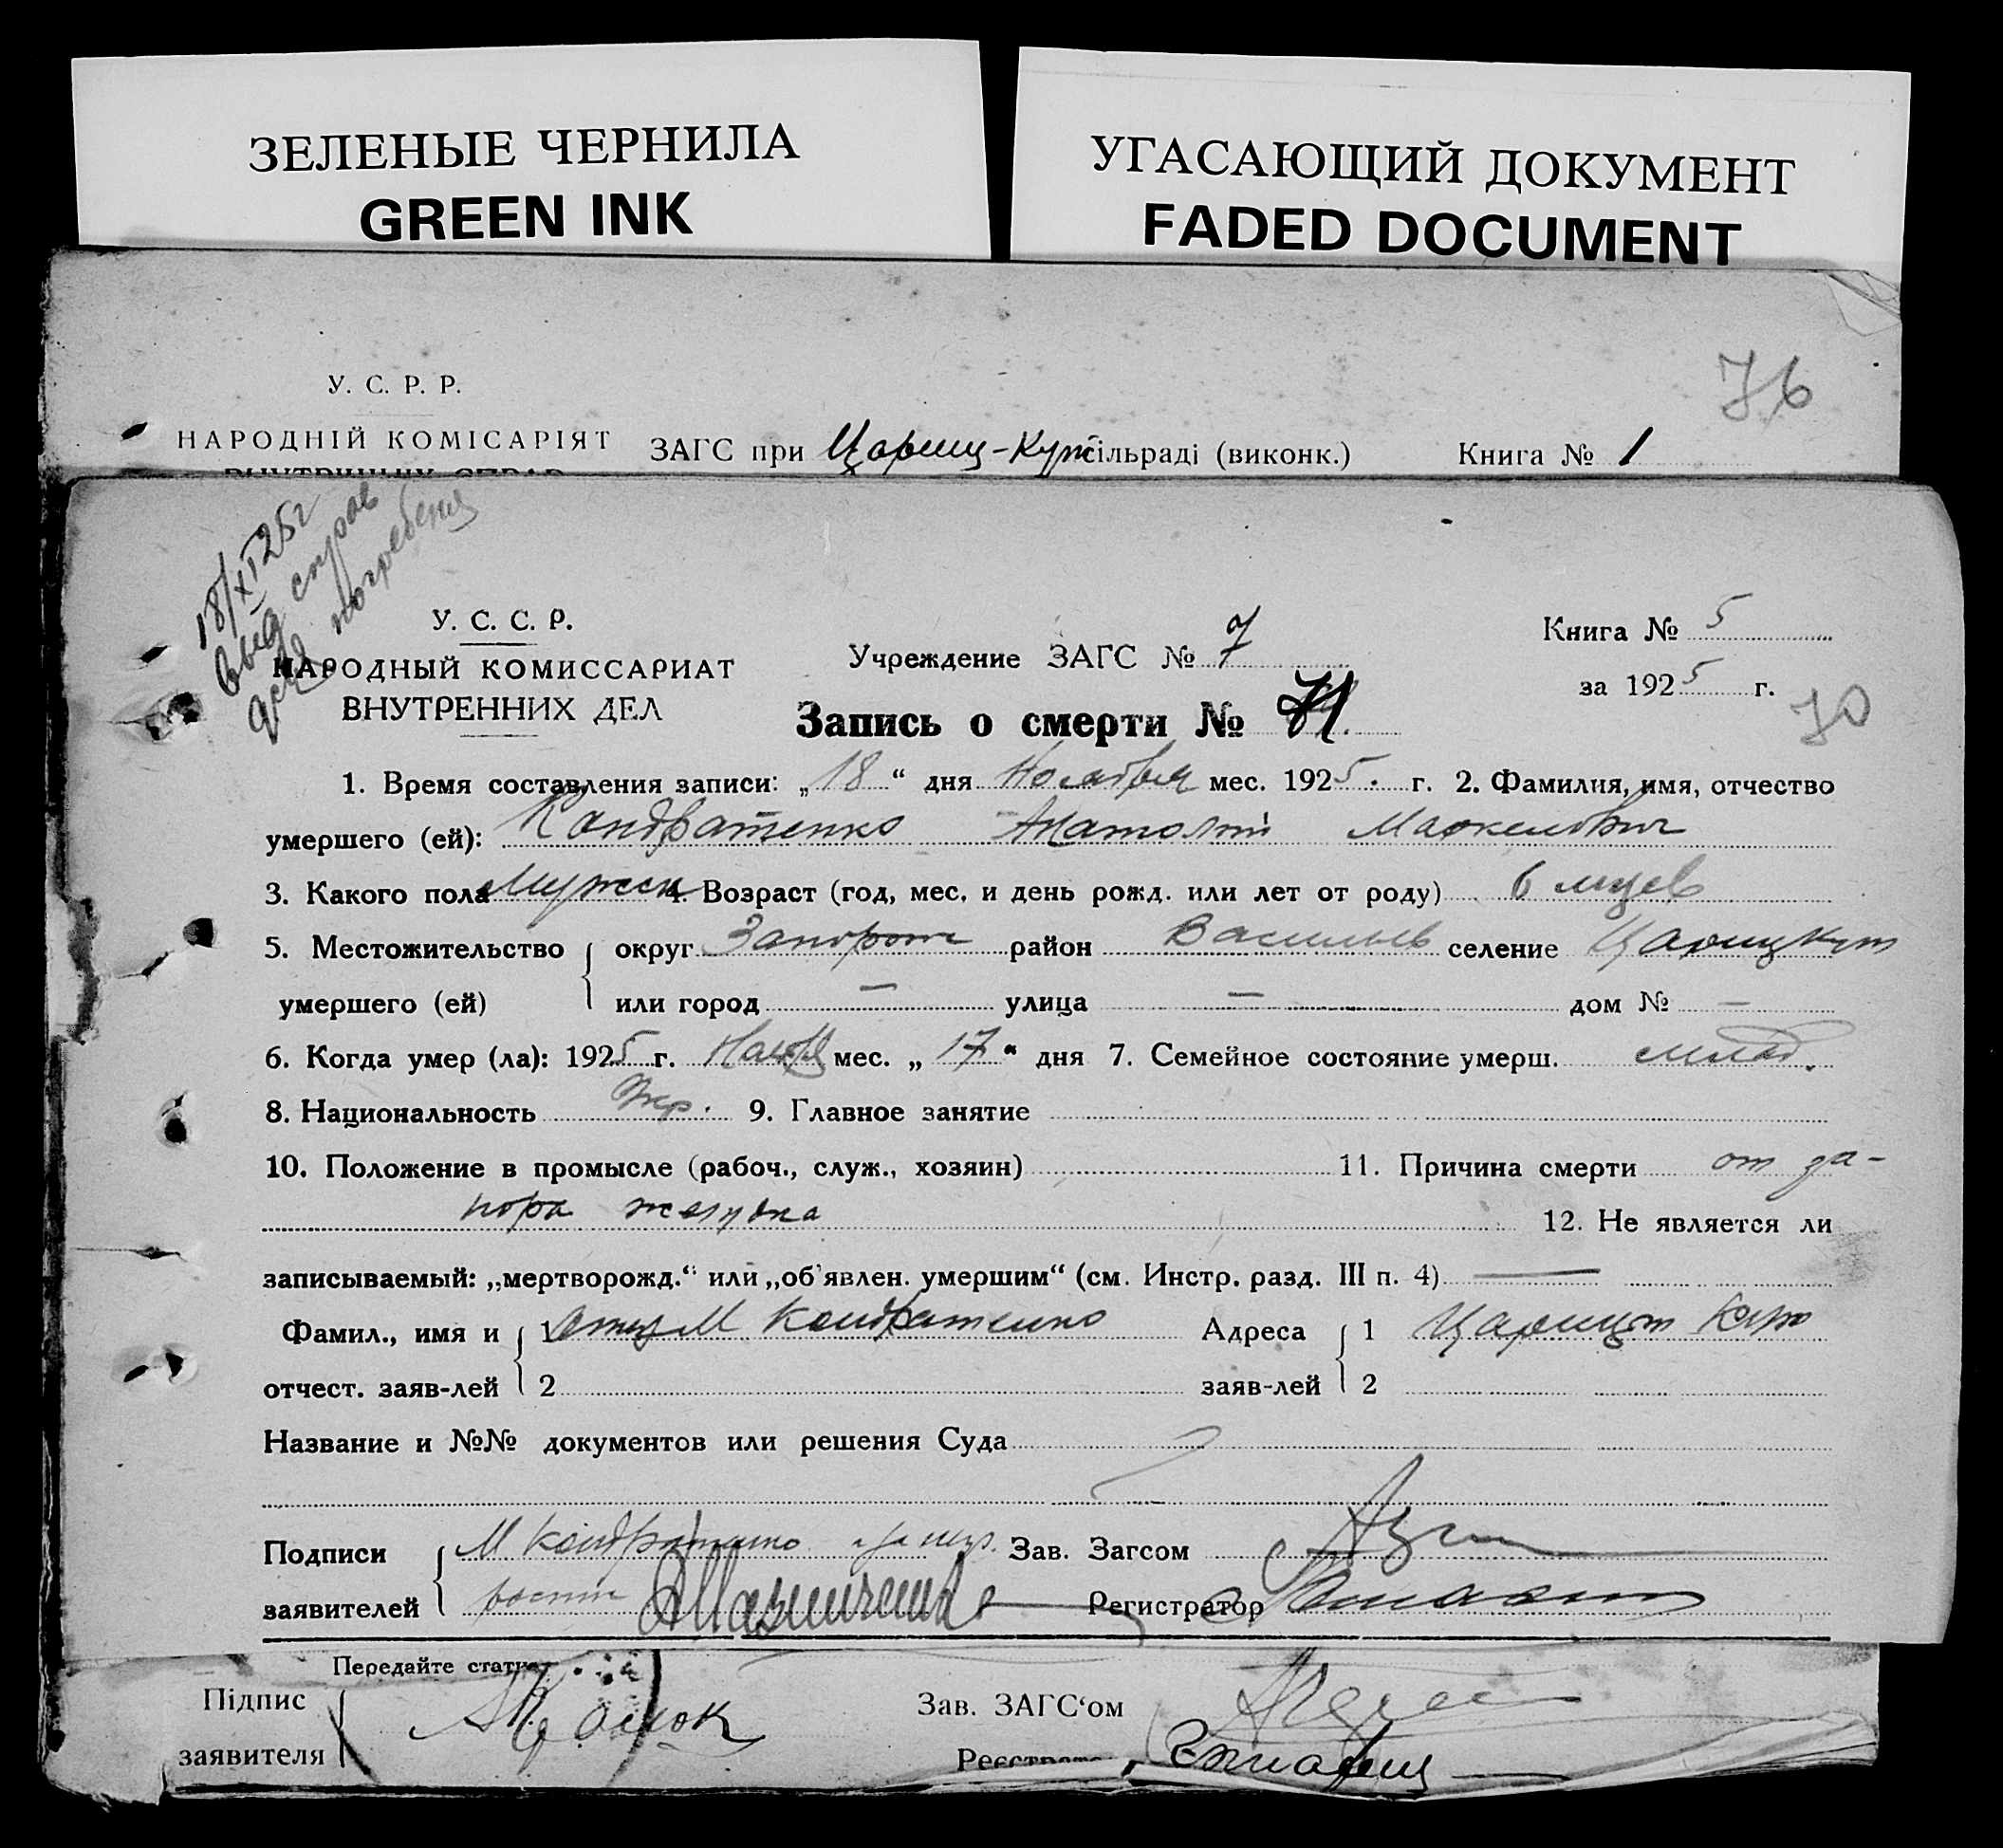 ЗЕЛЕНЫЕ ЧЕРНИЛА
GREEN INK
УГАСАЮЩИЙ ДОКУМЕНТ
FADED DOCUMENT
У. С. Р. Р.
76
НАРОДНІЙ КОМІСАРІЯТ
ЗАГС при Цариц-Кут сільраді (виконк.) Книга № 1
ВНУТРІШНІХ СПРАВ
18/XI 25 г
выд справ
для погребения
У. С. С. Р.
НАРОДНЫЙ КОМИССАРИАТ
ВНУТРЕННИХ ДЕЛ
Учреждение ЗАГС № 7
Книга № 5
за 1925 г.
70
Запись о смерти № 71.
1. Время составления записи: „18“ дня Ноября мес. 1925. г. 2. Фамилия, имя, отчество
умершего (ей): Кондратенко Анатолий Маркелович
3. Какого пола Мужск 4. Возраст (год, мес. и день рожд. или лет от роду) 6 мцев
5. Местожительство округ Запорож район Васильев селение Царицкут
умершего (ей) или город — улица — дом № —
6. Когда умер (ла): 1925 г. Нояб мес. „17“ дня 7. Семейное состояние умерш. млад.
8. Национальность Укр. 9. Главное занятие
10. Положение в промысле (рабоч., служ., хозяин) 11. Причина смерти от за-
пора желудка 12. Не является ли
записываемый: „мертворожд.“ или „об'явлен. умершим“ (см. Инстр. разд. III п. 4) —
Фамил., имя и 1 Отец М Кондратенко Адреса 1 Царицын Кут
отчест. заяв-лей 2 заяв-лей 2
Название и №№ документов или решения Суда
Подписи М Кондратенко Зав. Загсом
заявителей Регистратор
Передайте стати
Підпис Зав. ЗАГС‘ом
заявителя